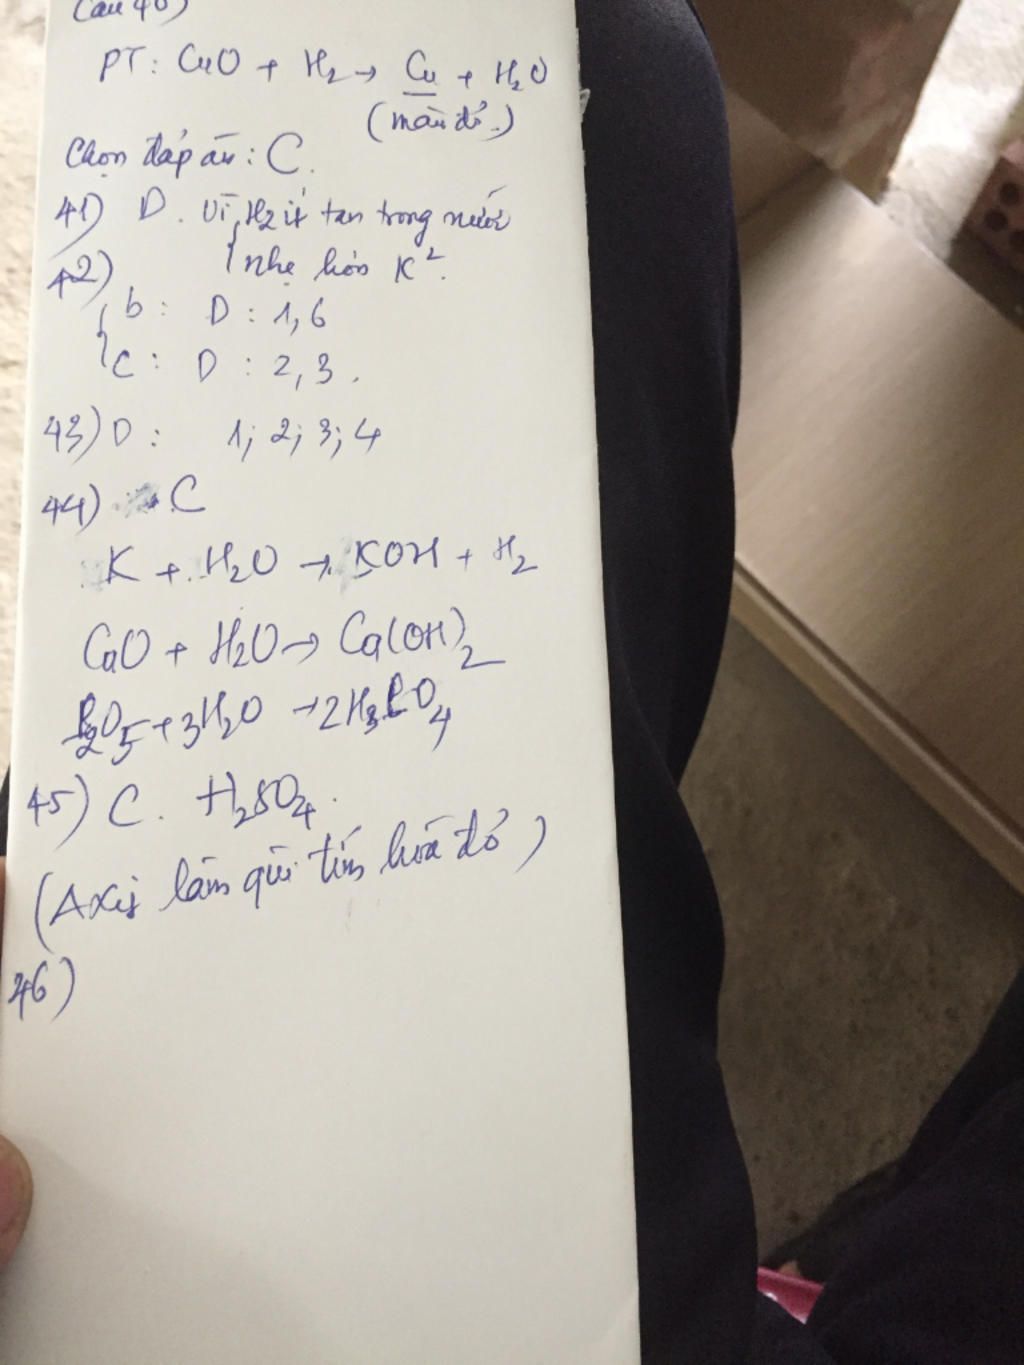 Câu 40)
PT: CuO + H₂ → Cu + H₂O
(màu đỏ)
Chọn đáp án: C.
41) D. Vì H₂ ít tan trong nước
nhẹ hơn K²
42)
b: D: 1, 6
C: D: 2, 3.
43) D: 1; 2; 3; 4
44) C
K + H₂O → KOH + H₂
CaO + H₂O → Ca(OH)₂
P₂O₅ + 3H₂O → 2H₃PO₄
45) C. H₂SO₄.
(Axit làm quì tím hoá đỏ)
46)